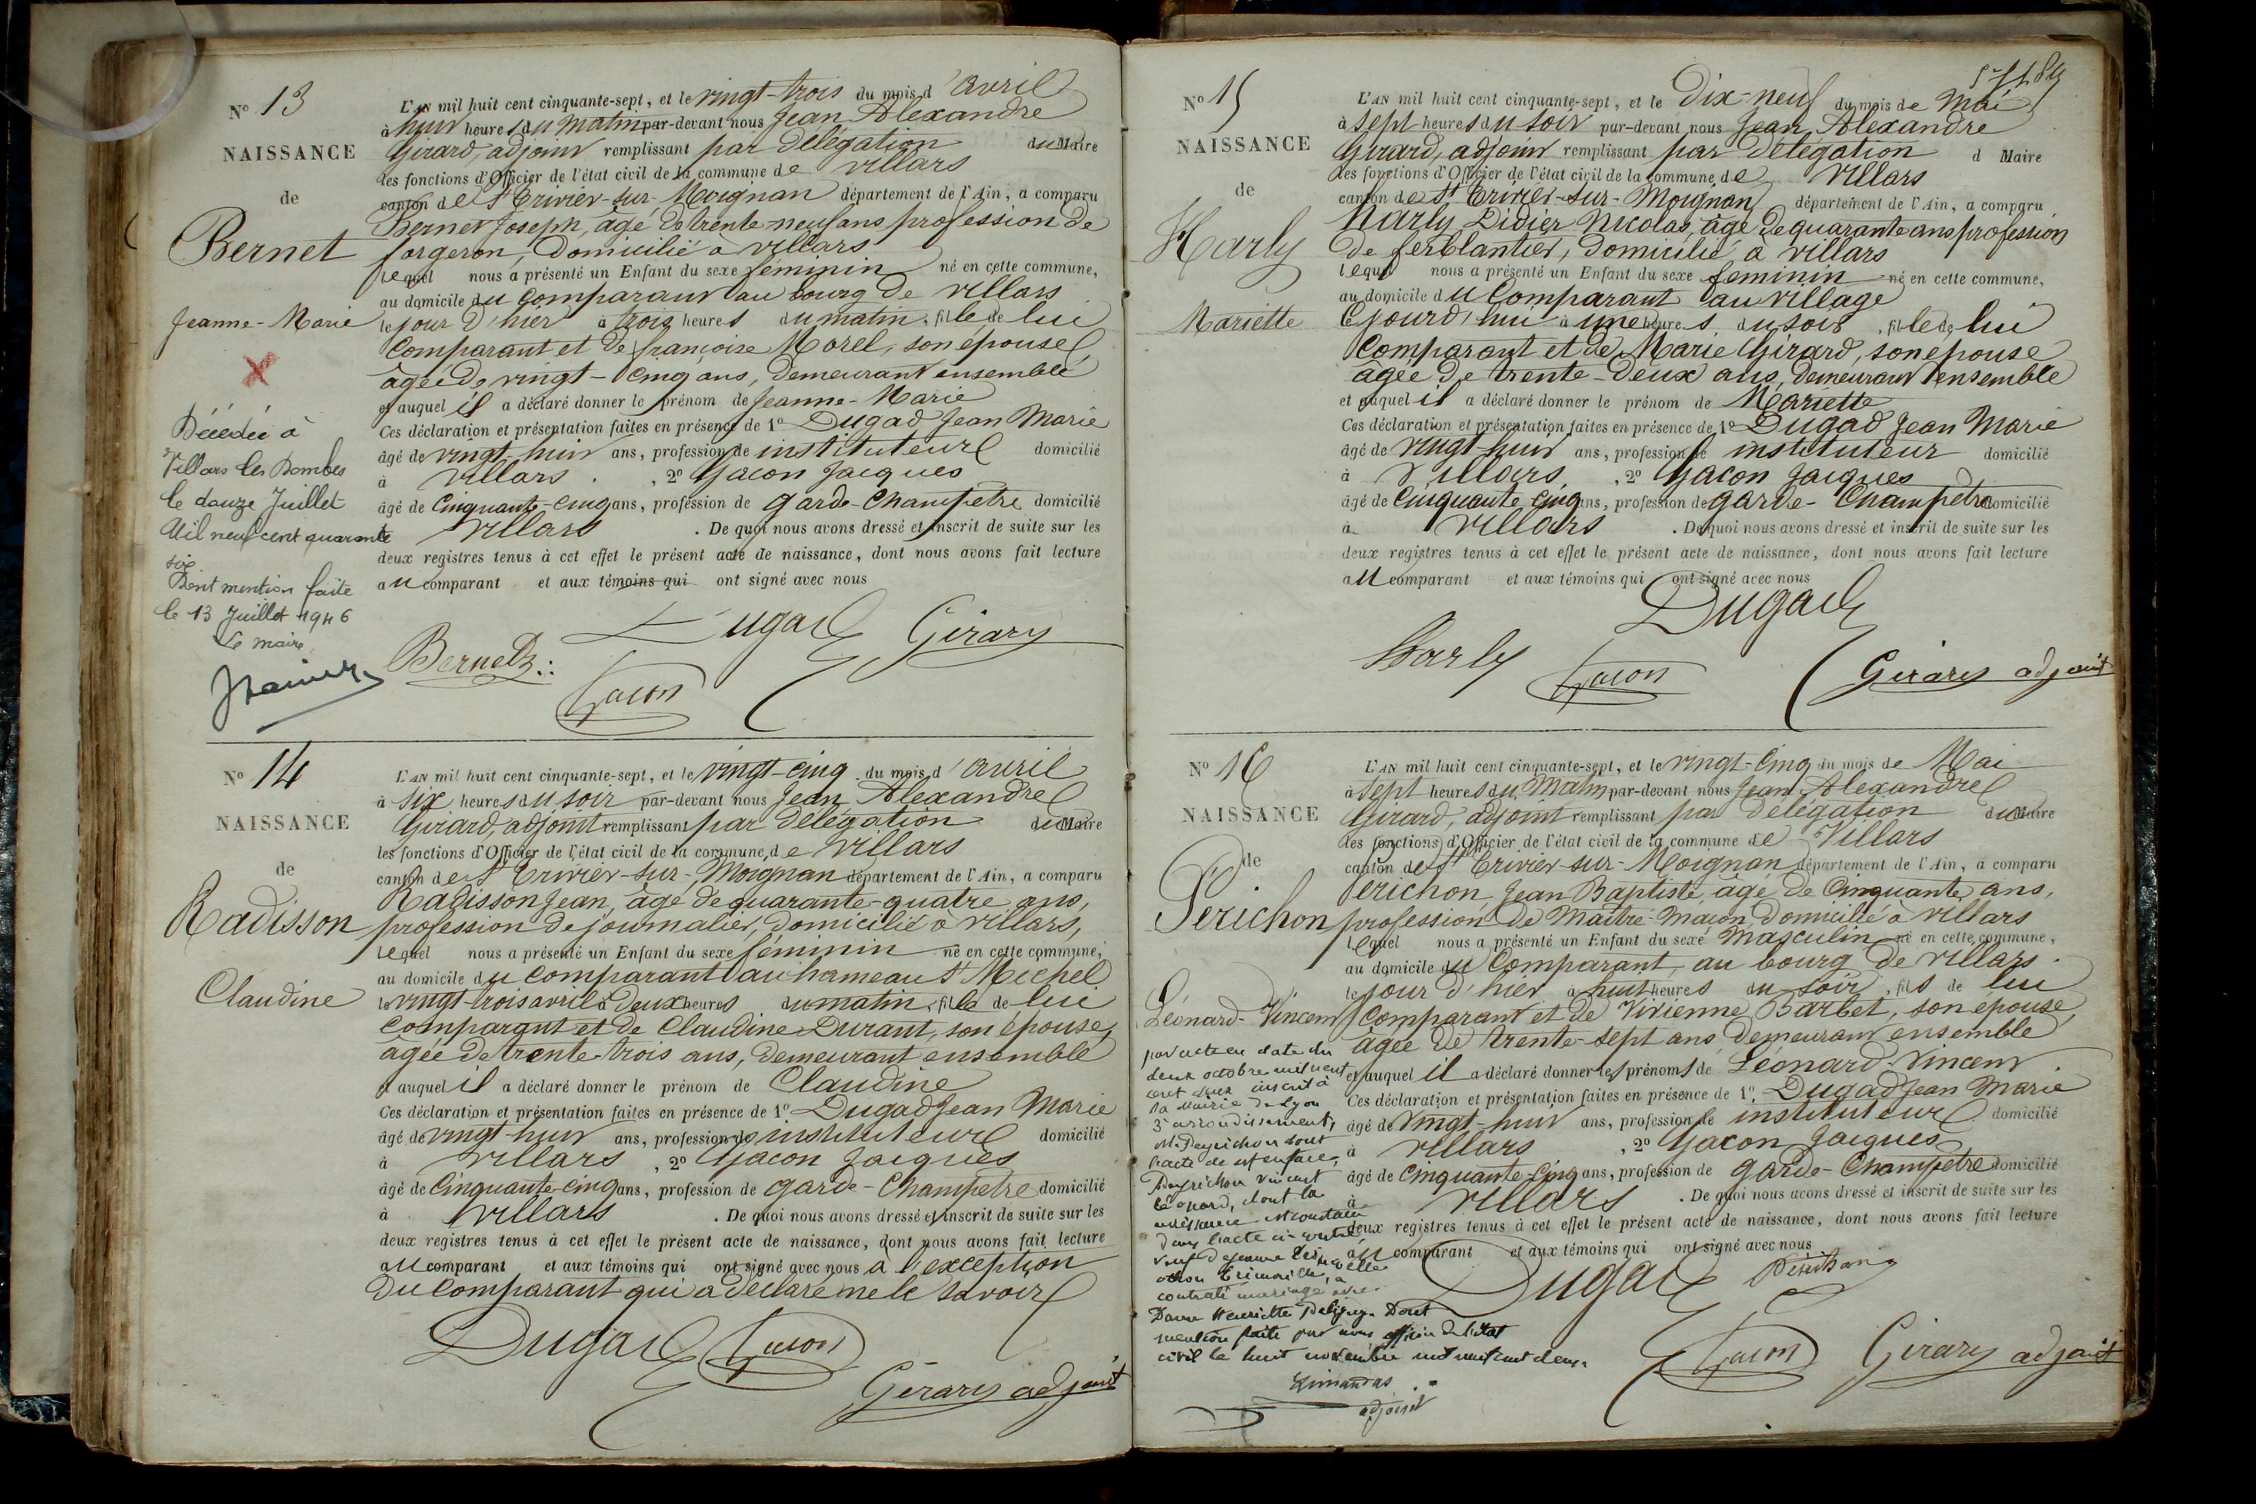 N° 13
NAISSANCE
de
Bernet
Jeanne-Marie
Décédée à
Villars les Dombes
le douze Juillet
Mil neuf cent quarante
six
Dont mention faite
le 13 Juillet 1946
Le maire
L'AN mil huit cent cinquante-sept, et le vingt-trois du mois d'avril
à huit heures du matin par-devant nous Jean Alexandre
Girard, adjoint remplissant par délégation du Maire
les fonctions d'Officier de l'état civil de la commune de villars
canton de St Trivier-sur-Moignan département de l'Ain, a comparu
Bernet Joseph, âgé de trente-neuf ans profession de
forgeron, domicilié à villars
lequel nous a présenté un Enfant du sexe féminin né en cette commune,
au domicile du comparant au bourg de villars
le jour d'hier à trois heures du matin, fille de lui
comparant et de françoise Morel, son épouse,
âgée de vingt-cinq ans, demeurant ensemble
et auquel il a déclaré donner le prénom de Jeanne-Marie
Ces déclaration et présentation faites en présence de 1° Dugad Jean Marie
âgé de vingt-huit ans, profession de instituteur domicilié
à villars . , 2° Gacon Jacques
âgé de cinquante-cinq ans, profession de garde-Champêtre domicilié
à villars . De quoi nous avons dressé et inscrit de suite sur les
deux registres tenus à cet effet le présent acte de naissance, dont nous avons fait lecture
au comparant et aux témoins qui ont signé avec nous
Dugad Girard
Bernet
Gacon
N° 14
NAISSANCE
de
Radisson
Claudine
L'AN mil huit cent cinquante-sept, et le vingt-cinq du mois d'avril
à six heures du soir par-devant nous Jean Alexandre
Girard, adjoint remplissant par délégation du Maire
les fonctions d'Officier de l'état civil de la commune de villars
canton de St Trivier-sur-Moignan département de l'Ain, a comparu
Radisson Jean, âgé de quarante-quatre ans,
profession de journalier, domicilié à villars,
lequel nous a présenté un Enfant du sexe féminin né en cette commune,
au domicile du comparant au hameau St Michel
le vingt-trois avril à deux heures du matin, fille de lui
comparant et de Claudine Durant, son épouse,
âgée de trente-trois ans, demeurant ensemble
et auquel il a déclaré donner le prénom de Claudine
Ces déclaration et présentation faites en présence de 1° Dugad Jean Marie
âgé de vingt-huit ans, profession de instituteur domicilié
à villars , 2° Gacon Jacques
âgé de cinquante-cinq ans, profession de garde-Champêtre domicilié
à villars . De quoi nous avons dressé et inscrit de suite sur les
deux registres tenus à cet effet le présent acte de naissance, dont nous avons fait lecture
au comparant et aux témoins qui ont signé avec nous à l'exception
du comparant qui a déclaré ne le savoir
Dugad Gacon
Girard adjoint
N° 15
NAISSANCE
de
Harly
Mariette
L'AN mil huit cent cinquante-sept, et le Dix-neuf du mois de Mai
à sept heures du soir par-devant nous Jean Alexandre
Girard, adjoint remplissant par délégation d Maire
les fonctions d'Officier de l'état civil de la commune de Villars
canton de St Trivier-sur-Moignan département de l'Ain, a comparu
Harly Didier Nicolas, âgé de quarante ans profession
de ferblantier, domicilié à villars
lequel nous a présenté un Enfant du sexe féminin né en cette commune,
au domicile du comparant au village
cejourd'hui à une heures du soir, fille de lui
comparant et de Marie Girard, son épouse
âgée de trente-deux ans, demeurant ensemble
et auquel il a déclaré donner le prénom de Mariette
Ces déclaration et présentation faites en présence de 1° Dugad Jean Marie
âgé de vingt-huit ans, profession de instituteur domicilié
à Villars , 2° Gacon Jacques
âgé de cinquante cinq ans, profession de garde-Champêtre domicilié
à villars . De quoi nous avons dressé et inscrit de suite sur les
deux registres tenus à cet effet le présent acte de naissance, dont nous avons fait lecture
au comparant et aux témoins qui ont signé avec nous
Dugad
Harly Gacon Girard adjoint
N° 16
NAISSANCE
de
Perichon
Léonard-Vincent
par acte en date du
deux octobre mil neuf
cent deux inscrit à
la Mairie de Lyon
3e arrondissement,
dont
l'acte de
Peyrichon Vincent
Léonard, dont la
naissance est constatée
dans l'acte ci-contre,
veuf de Jeanne
a
contracté mariage avec
Dame Henriette Dont
mention faite par nous officier de l'état
civil le huit novembre mil neuf cent deux.
adjoint
L'AN mil huit cent cinquante-sept, et le vingt-cinq du mois de Mai
à sept heures du Matin par-devant nous Jean Alexandre
Girard, adjoint remplissant par délégation du Maire
les fonctions d'Officier de l'état civil de la commune de Villars
canton de St Trivier-sur-Moignan département de l'Ain, a comparu
Perichon Jean Baptiste, âgé de Cinquante ans,
profession de Maître-maçon domicilié à villars
lequel nous a présenté un Enfant du sexe Masculin né en cette commune,
au domicile du Comparant, au bourg de villars.
le jour d'hier à huit heures du soir, fils de lui
comparant et de Vivienne Barbet, son épouse,
âgée de trente-sept ans demeurant ensemble
et auquel il a déclaré donner les prénoms de Léonard-Vincent.
Ces déclaration et présentation faites en présence de 1°, Dugad Jean Marie
âgé de vingt-huit ans, profession de instituteur domicilié
à villars , 2° Gacon Jacques
âgé de cinquante-cinq ans, profession de garde-Champêtre domicilié
à villars . De quoi nous avons dressé et inscrit de suite sur les
deux registres tenus à cet effet le présent acte de naissance, dont nous avons fait lecture
au comparant et aux témoins qui ont signé avec nous
Dugad Périchon
Gacon Girard adjoint